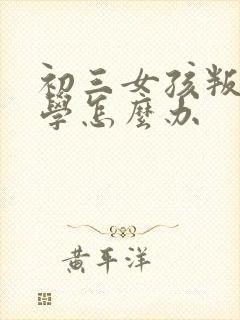 初三女孩叛
學怎麼办
黄平洋